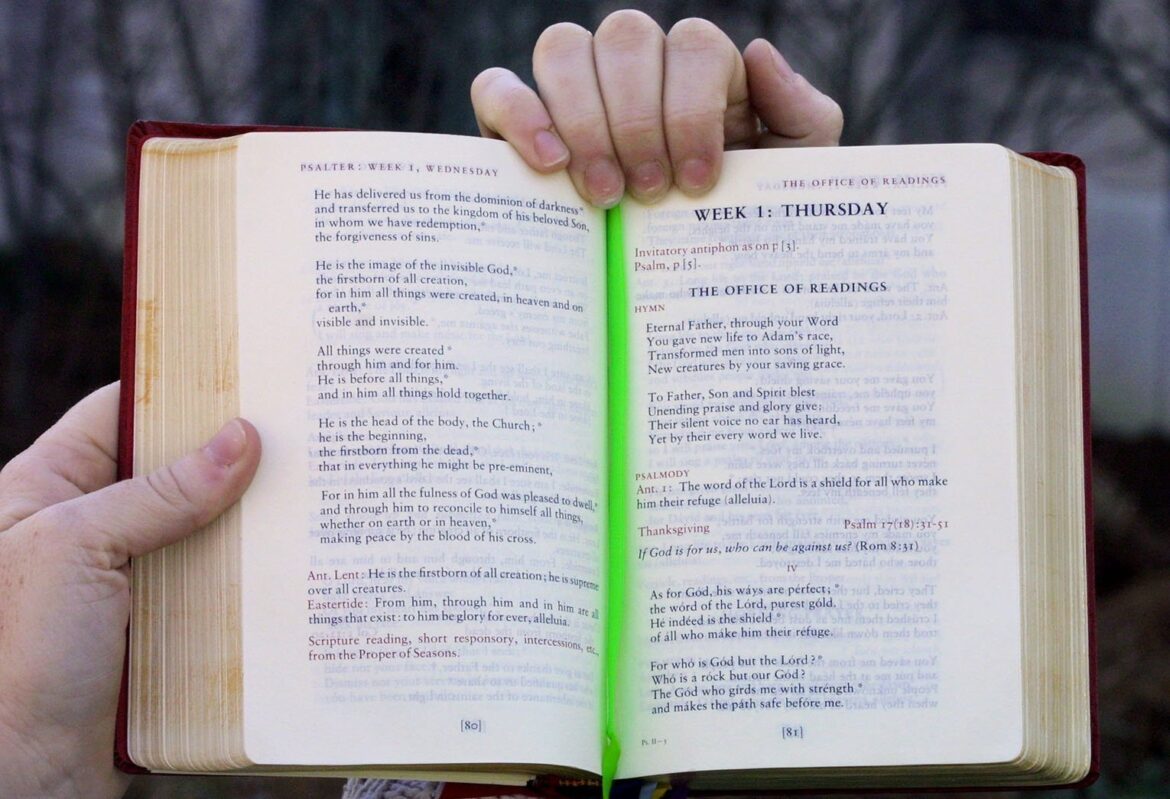 PSALTER: WEEK 1, WEDNESDAY
He has delivered us from the dominion of darkness*
and transferred us to the kingdom of his beloved Son,
in whom we have redemption,*
the forgiveness of sins.
He is the image of the invisible God,*
the firstborn of all creation,
for in him all things were created, in heaven and on
earth,*
visible and invisible.
All things were created *
through him and for him.
He is before all things,*
and in him all things hold together.
He is the head of the body, the Church; *
he is the beginning,
the firstborn from the dead,*
that in everything he might be pre-eminent,
For in him all the fulness of God was pleased to dwell,*
and through him to reconcile to himself all things,
whether on earth or in heaven,*
making peace by the blood of his cross.
Ant. Lent: He is the firstborn of all creation; he is supreme
over all creatures.
Eastertide: From him, through him and in him are all
things that exist: to him be glory for ever, alleluia.
Scripture reading, short responsory, intercessions, etc.,
from the Proper of Seasons.
[80]
THE OFFICE OF READINGS
WEEK 1: THURSDAY
Invitatory antiphon as on p [3].
Psalm, p [5].
THE OFFICE OF READINGS
HYMN
Eternal Father, through your Word
You gave new life to Adam's race,
Transformed men into sons of light,
New creatures by your saving grace.
To Father, Son and Spirit blest
Unending praise and glory give:
Their silent voice no ear has heard,
Yet by their every word we live.
PSALMODY
Ant. 1: The word of the Lord is a shield for all who make
him their refuge (alleluia).
Thanksgiving Psalm 17(18):31-51
If God is for us, who can be against us? (Rom 8:31)
IV
As for Gód, his wáys are pérfect; *
the wórd of the Lord, purest góld.
Hé indéed is the shield *
of áll who máke him their réfuge.
For whó is Gód but the Lórd? *
Whó is a róck but our Gód?
The Gód who gírds me with stréngth *
and mákes the páth safe befóre me.
Ps. II—5
[81]